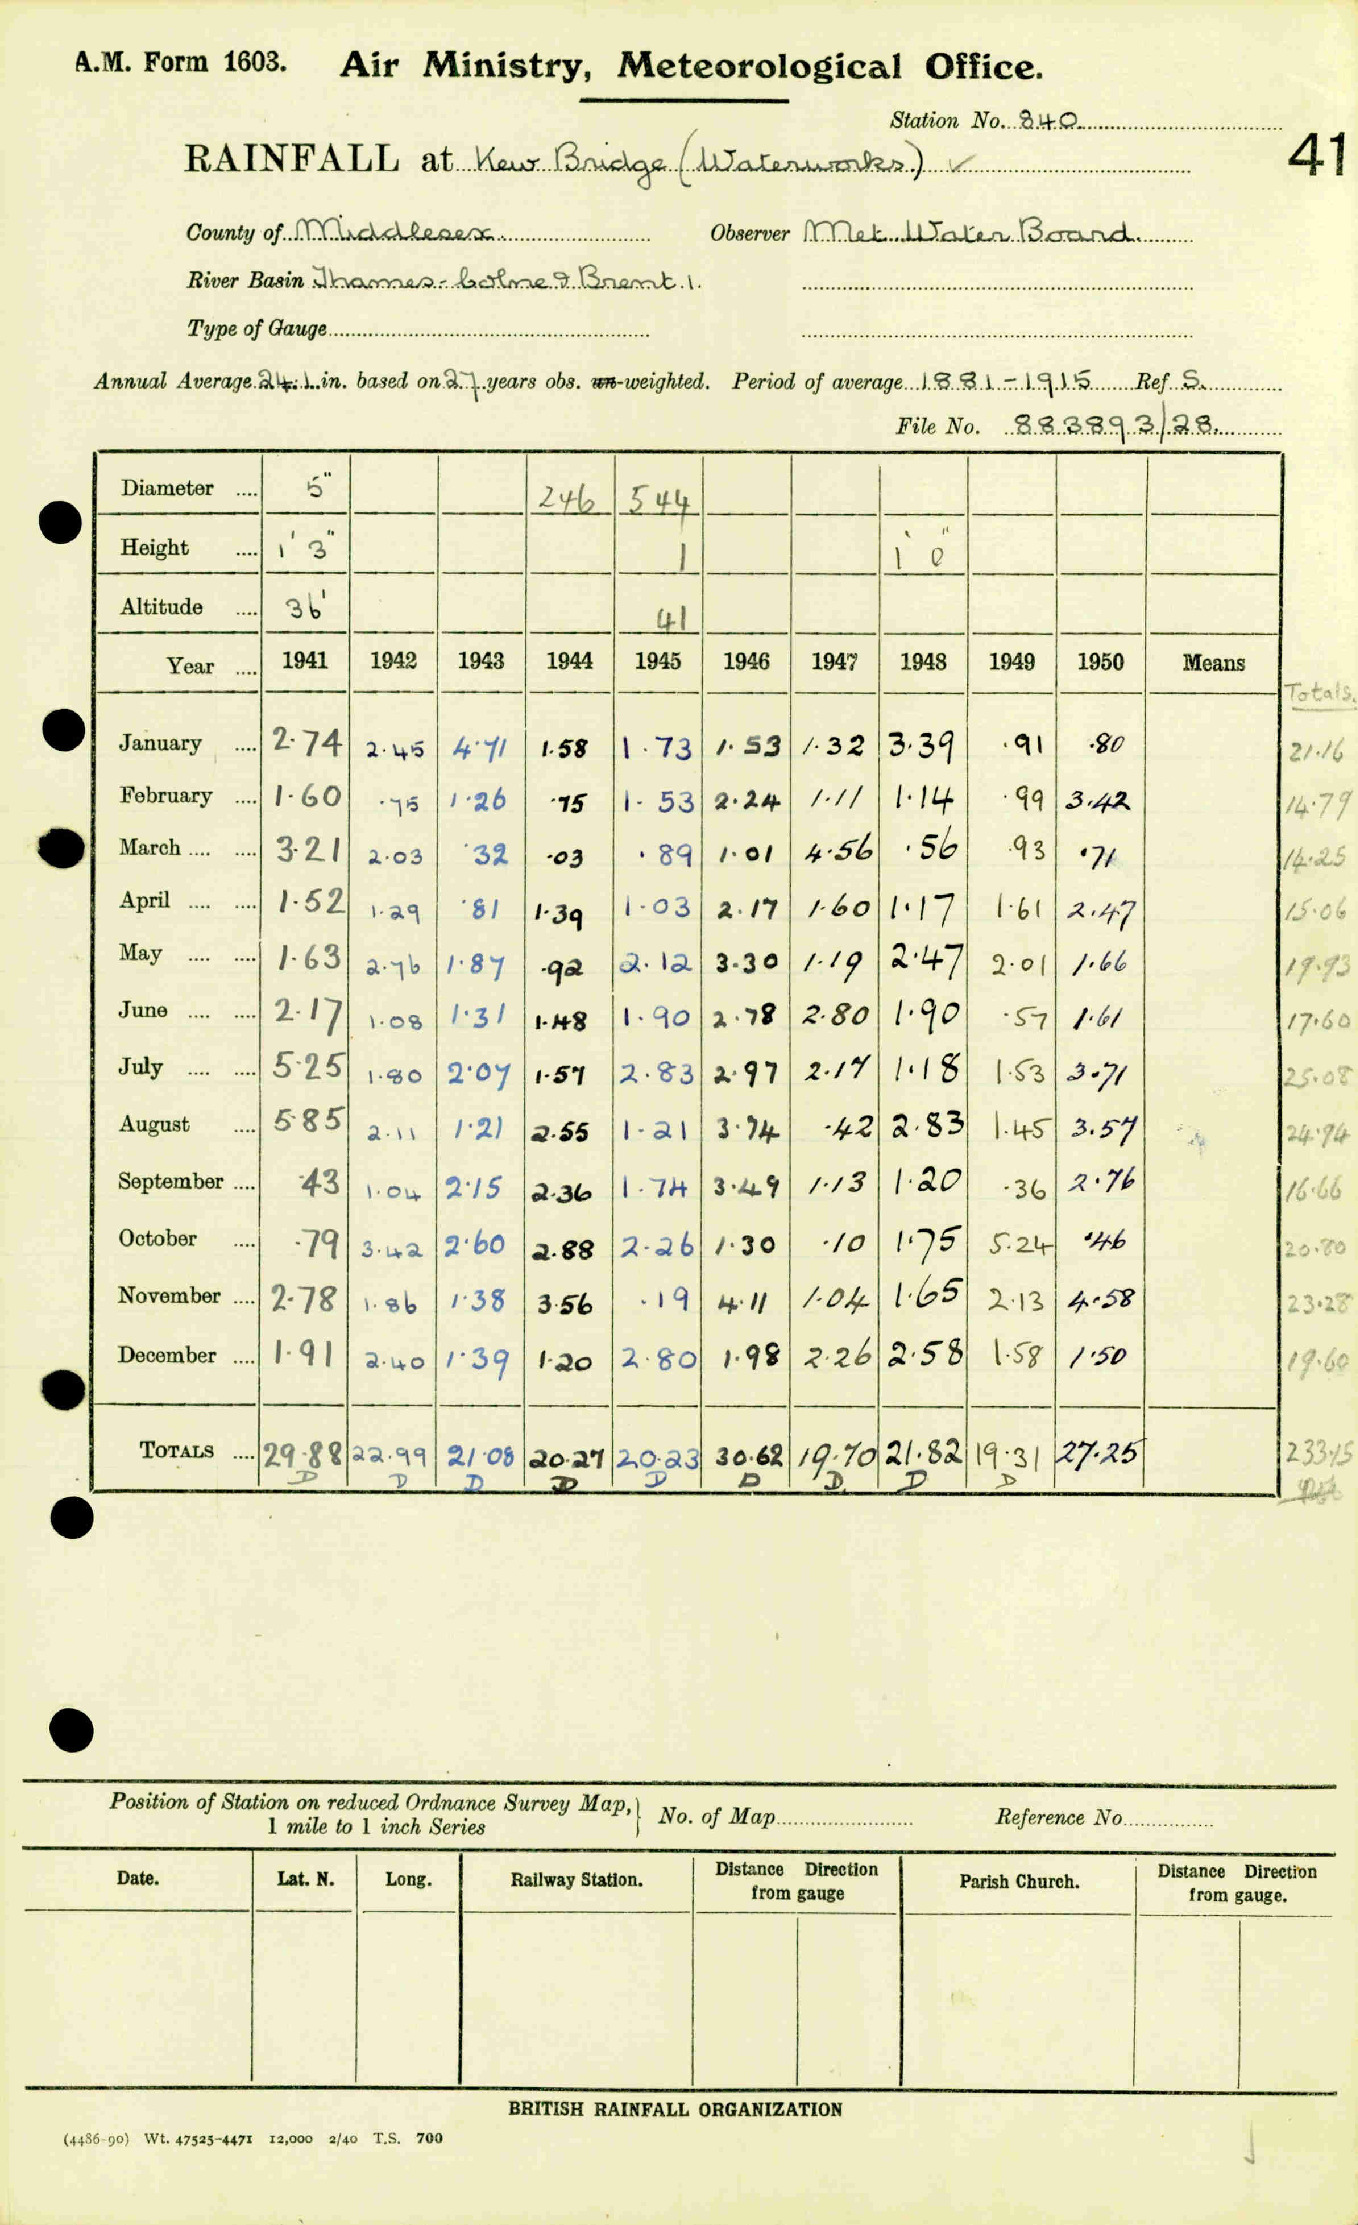 A.M. Form 1603. Air Ministry, Meteorological Office.
Station No. 840
41
RAINFALL at Kew Bridge (Waterworks) ✓
County of Middlesex Observer Met. Water Board.
River Basin Thames - Colne & Brent 1.
Type of Gauge
Annual Average 24.1 in. based on 27 years obs. un-weighted. Period of average 1881-1915 Ref S.
File No. 883893/28.
Diameter .... 5" 246 544
Height .... 1' 3" 1 1' 0"
Altitude .... 36' 41
Year .... 1941 1942 1943 1944 1945 1946 1947 1948 1949 1950 Means
Totals.
January .... 2.74 2.45 4.71 1.58 1.73 1.53 1.32 3.39 .91 .80 21.16
February .... 1.60 .75 1.26 .75 1.53 2.24 1.11 1.14 .99 3.42 14.79
March .... .... 3.21 2.03 .32 .03 .89 1.01 4.56 .56 .93 .71 14.25
April .... .... 1.52 1.29 .81 1.39 1.03 2.17 1.60 1.17 1.61 2.47 15.06
May .... .... 1.63 2.76 1.87 .92 2.12 3.30 1.19 2.47 2.01 1.66 19.93
June .... .... 2.17 1.08 1.31 1.48 1.90 2.78 2.80 1.90 .57 1.61 17.60
July .... .... 5.25 1.80 2.07 1.57 2.83 2.97 2.17 1.18 1.53 3.71 25.08
August .... 5.85 2.11 1.21 2.55 1.21 3.74 .42 2.83 1.45 3.57 24.94
September .... .43 1.04 2.15 2.36 1.74 3.49 1.13 1.20 .36 2.76 16.66
October .... .79 3.42 2.60 2.88 2.26 1.30 .10 1.75 5.24 .46 20.80
November .... 2.78 1.86 1.38 3.56 .19 4.11 1.04 1.65 2.13 4.58 23.28
December .... 1.91 2.40 1.39 1.20 2.80 1.98 2.26 2.58 1.58 1.50 19.60
TOTALS .... 29.88 22.99 21.08 20.27 20.23 30.62 19.70 21.82 19.31 27.25 233.15
D D D D D D D D D
Position of Station on reduced Ordnance Survey Map, } No. of Map Reference No.
1 mile to 1 inch Series
Date. Lat. N. Long. Railway Station. Distance Direction Parish Church. Distance Direction
from gauge from gauge.
BRITISH RAINFALL ORGANIZATION
(4486-90) Wt. 47525-4471 12,000 2/40 T.S. 700